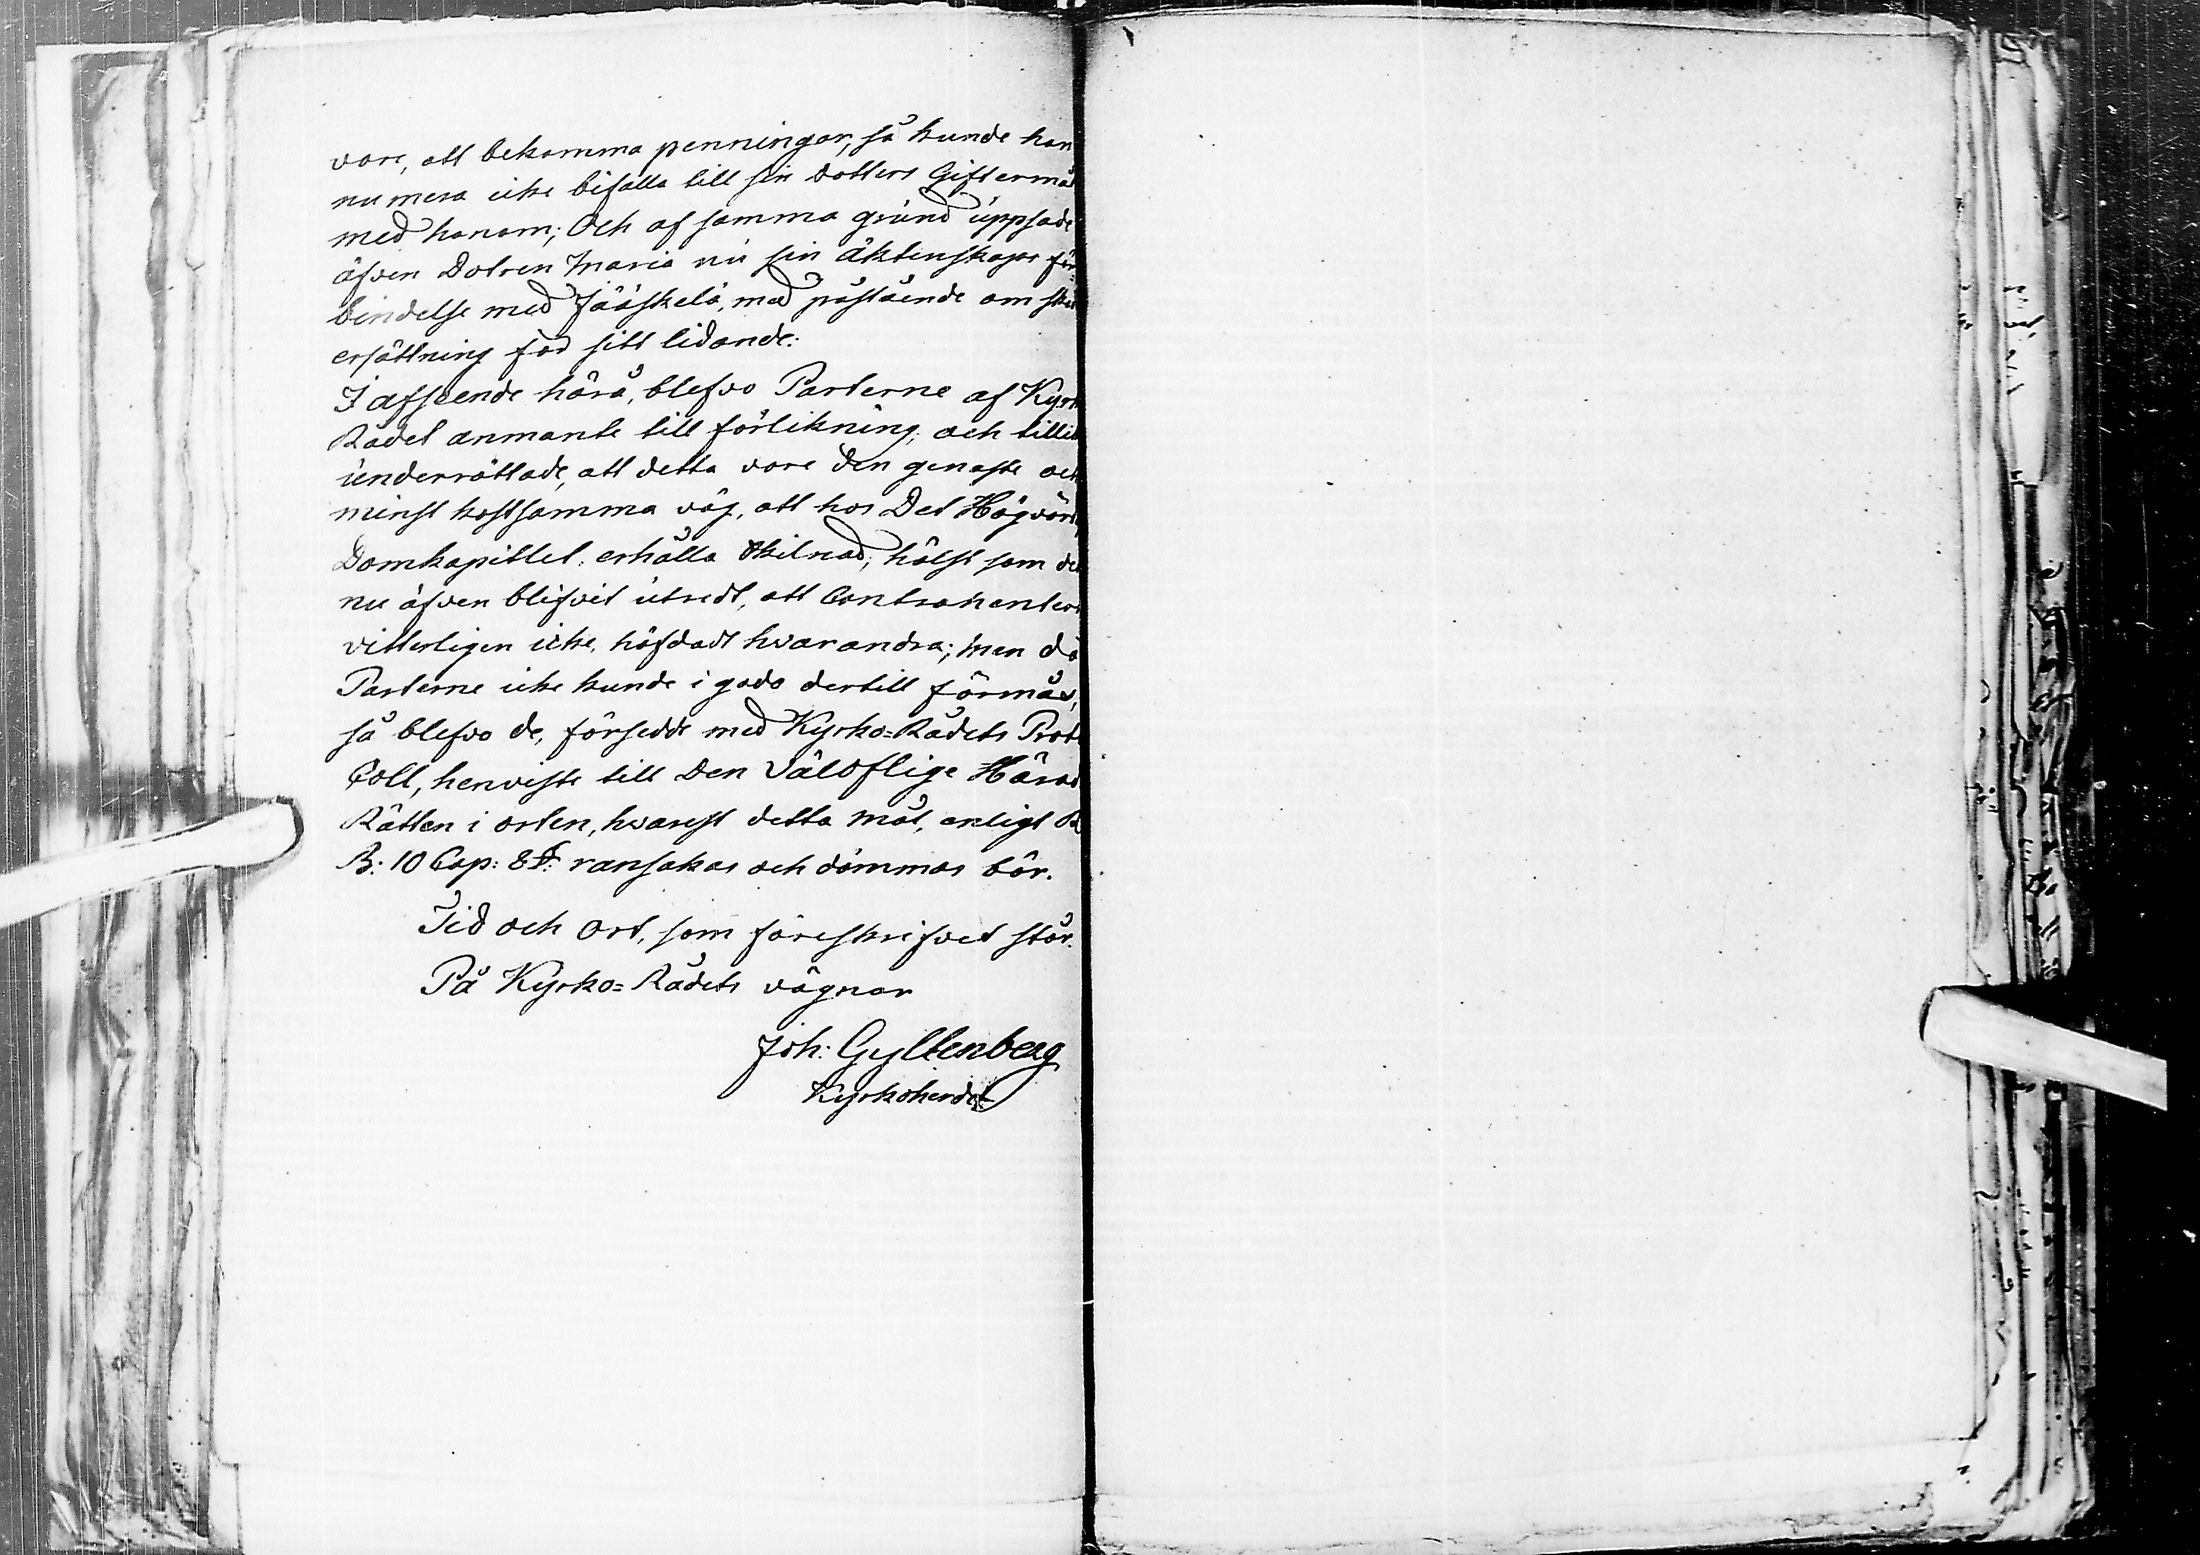 vore, att bekomma penningar, så kunde han
numera icke bifalla till sin Dotters Giftermål
med honom; Och af samma grund uppsade
äfven Dotren Maria nu sin äktenskaps för
bindelse med Jääskelä, med påstående om ska
ersättning för sitt lidande.
I afseende härå, blefvo Parterne af Kyrk
Rådet anmante till förlikning, och tillik
underrättade, att detta vore den genaste och
minst kostsamma väg, att hos Det Högvörd
Domkapitlet erhålla Skilnad, hälst som det
nu äfven blifvit utredt, att Contrahentern
vitterligen icke häfdadt hvarandra; men då
Parterne icke kunde i godo dertill förmås,
så blefvo de, försedde med Kyrko=Rådets Proto
Coll, henviste till Den Vällofliga Härads
Rätten i orten, hvarest detta mål, enligt R
B: 10 Cap: 8 §: ransakas och dömmas bör.
Tid och Ort, som föreskrifvet står.
På Kyrko=Rådets vägnar
Joh: Gyllenberg
Kyrkoherde